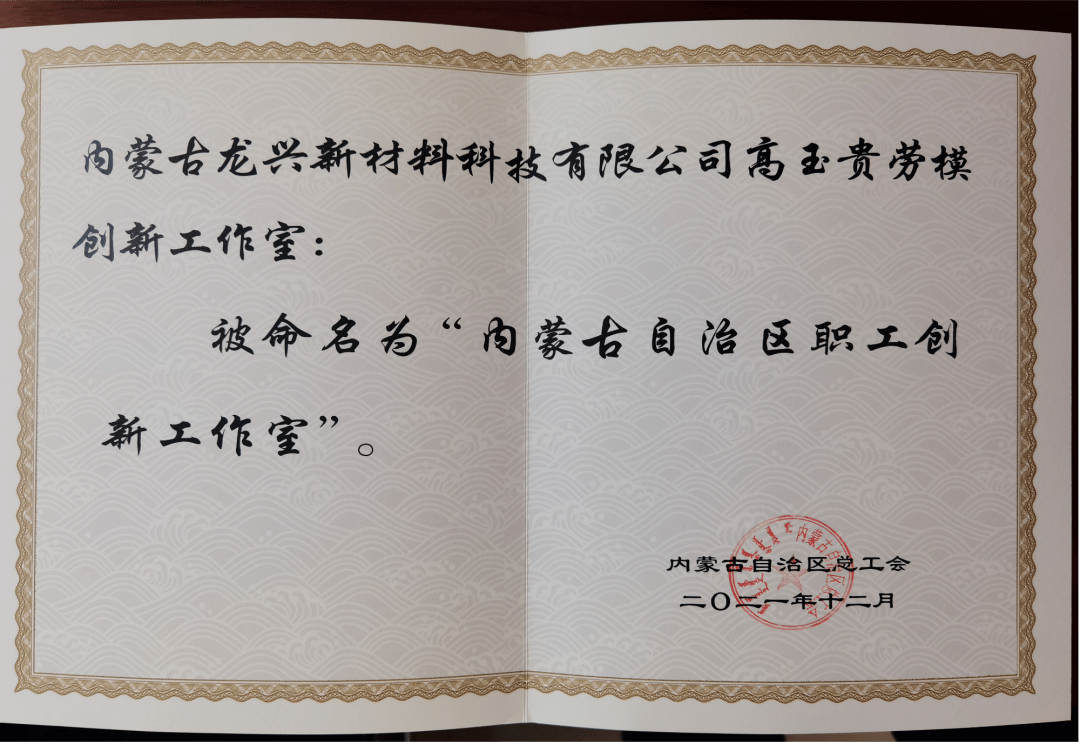 内蒙古龙兴新材料科技有限公司高玉贵劳模
创新工作室：
被命名为“内蒙古自治区职工创
新工作室”。
内蒙古自治区总工会
二〇二一年十二月